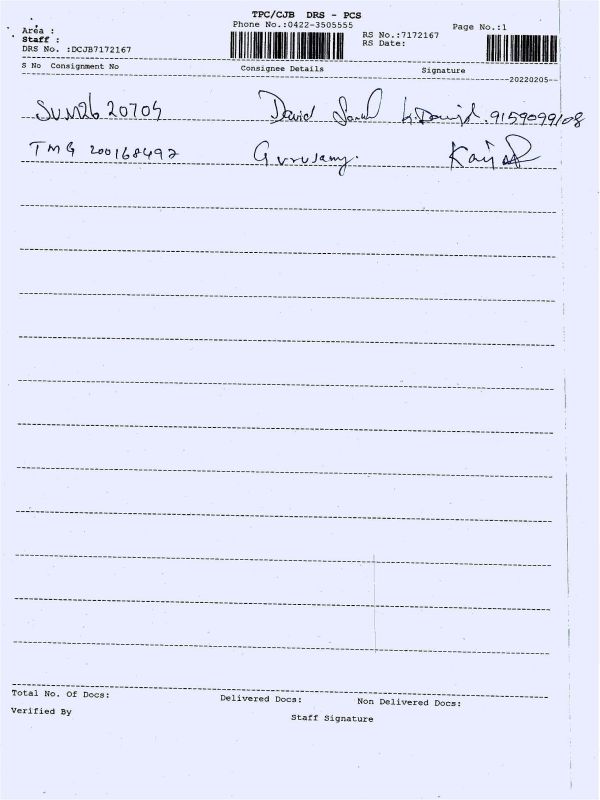 TPC/CJB DRS - PCS
Area : Phone No.:0422-3505555 Page No.:1
Staff : RS No.:7172167
DRS No. :DCJB7172167 RS Date:
S No Consignment No Consignee Details Signature
20220205
David 9159099108
TMG 200168492 Gurusamy.
Total No. Of Docs: Delivered Docs: Non Delivered Docs:
Verified By Staff Signature